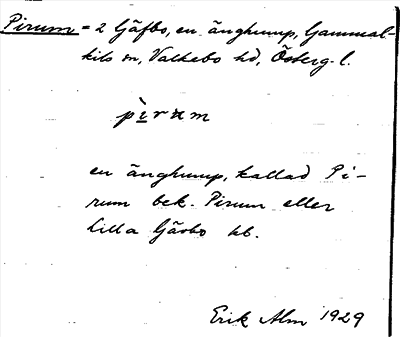 Pirum = 2 Gäfbo, en änghump, Gammal-
kils sn, Valkebo hd, Österg. l.
pìrum
en änghump, kallad Pi-
rum bek. Pirum eller
Lilla Gärbo hb.
Erik Alm 1929